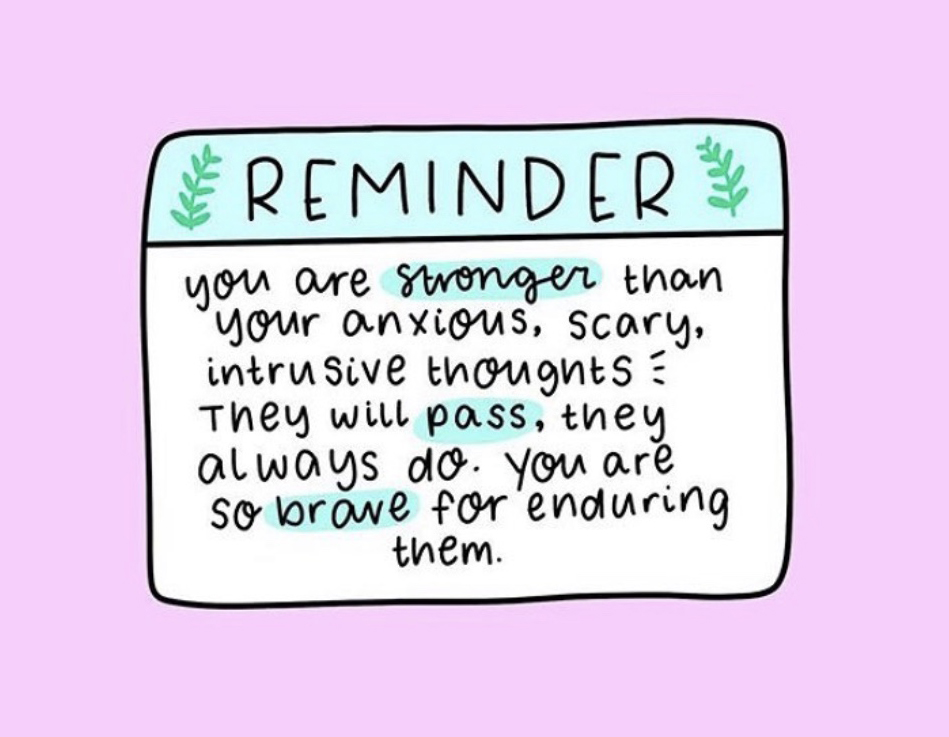 REMINDER
you are stronger than
your anxious, scary,
intrusive thoughts
They will pass, they
always do. You are
so brave for enduring
them.